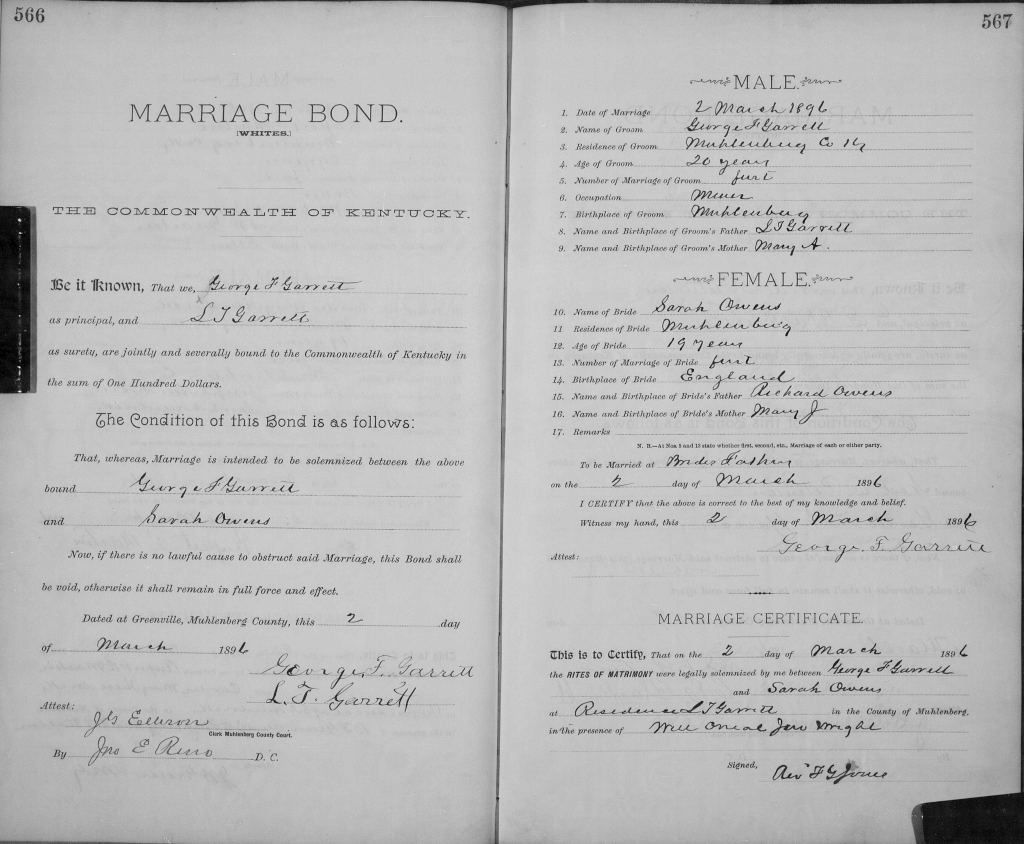 566
MARRIAGE BOND.
[WHITES.]
THE COMMONWEALTH OF KENTUCKY.
Be it Known, That we, George F Garrett
as principal, and L T Garrett
as surety, are jointly and severally bound to the Commonwealth of Kentucky in
the sum of One Hundred Dollars.
The Condition of this Bond is as follows:
That, whereas, Marriage is intended to be solemnized between the above
bound George F Garrett
and Sarah Owens
Now, if there is no lawful cause to obstruct said Marriage, this Bond shall
be void, otherwise it shall remain in full force and effect.
Dated at Greenville, Muhlenberg County, this 2 day
of March 1896
George F. Garrett
L. T. Garrett
Attest:
Clerk Muhlenberg County Court.
By Jno E Reno D. C.
567
MALE.
1. Date of Marriage 2 March 1896
2. Name of Groom George F Garrett
3. Residence of Groom Muhlenburg Co Ky
4. Age of Groom 20 years
5. Number of Marriage of Groom first
6. Occupation Miner
7. Birthplace of Groom Muhlenburg
8. Name and Birthplace of Groom's Father L T Garrett
9. Name and Birthplace of Groom's Mother Mary A.
FEMALE.
10. Name of Bride Sarah Owens
11 Residence of Bride Muhlenburg
12. Age of Bride 19 years
13. Number of Marriage of Bride first
14. Birthplace of Bride England
15. Name and Birthplace of Bride's Father Richard Owens
16. Name and Birthplace of Bride's Mother Mary J
17. Remarks
N. B.—At Nos. 5 and 13 state whether first, second, etc., Marriage of each or either party.
To be Married at Brides Fathers
on the 2 day of March 1896
I CERTIFY that the above is correct to the best of my knowledge and belief.
Witness my hand, this 2 day of March 1896
George. F. Garrett
Attest:
MARRIAGE CERTIFICATE.
This is to Certify, That on the 2 day of March 1896
the RITES OF MATRIMONY were legally solemnized by me between George F Garrett
and Sarah Owens
at Residence L T Garrett in the County of Muhlenberg,
in the presence of Will Oneal Wright
Signed, Rev F G Jones